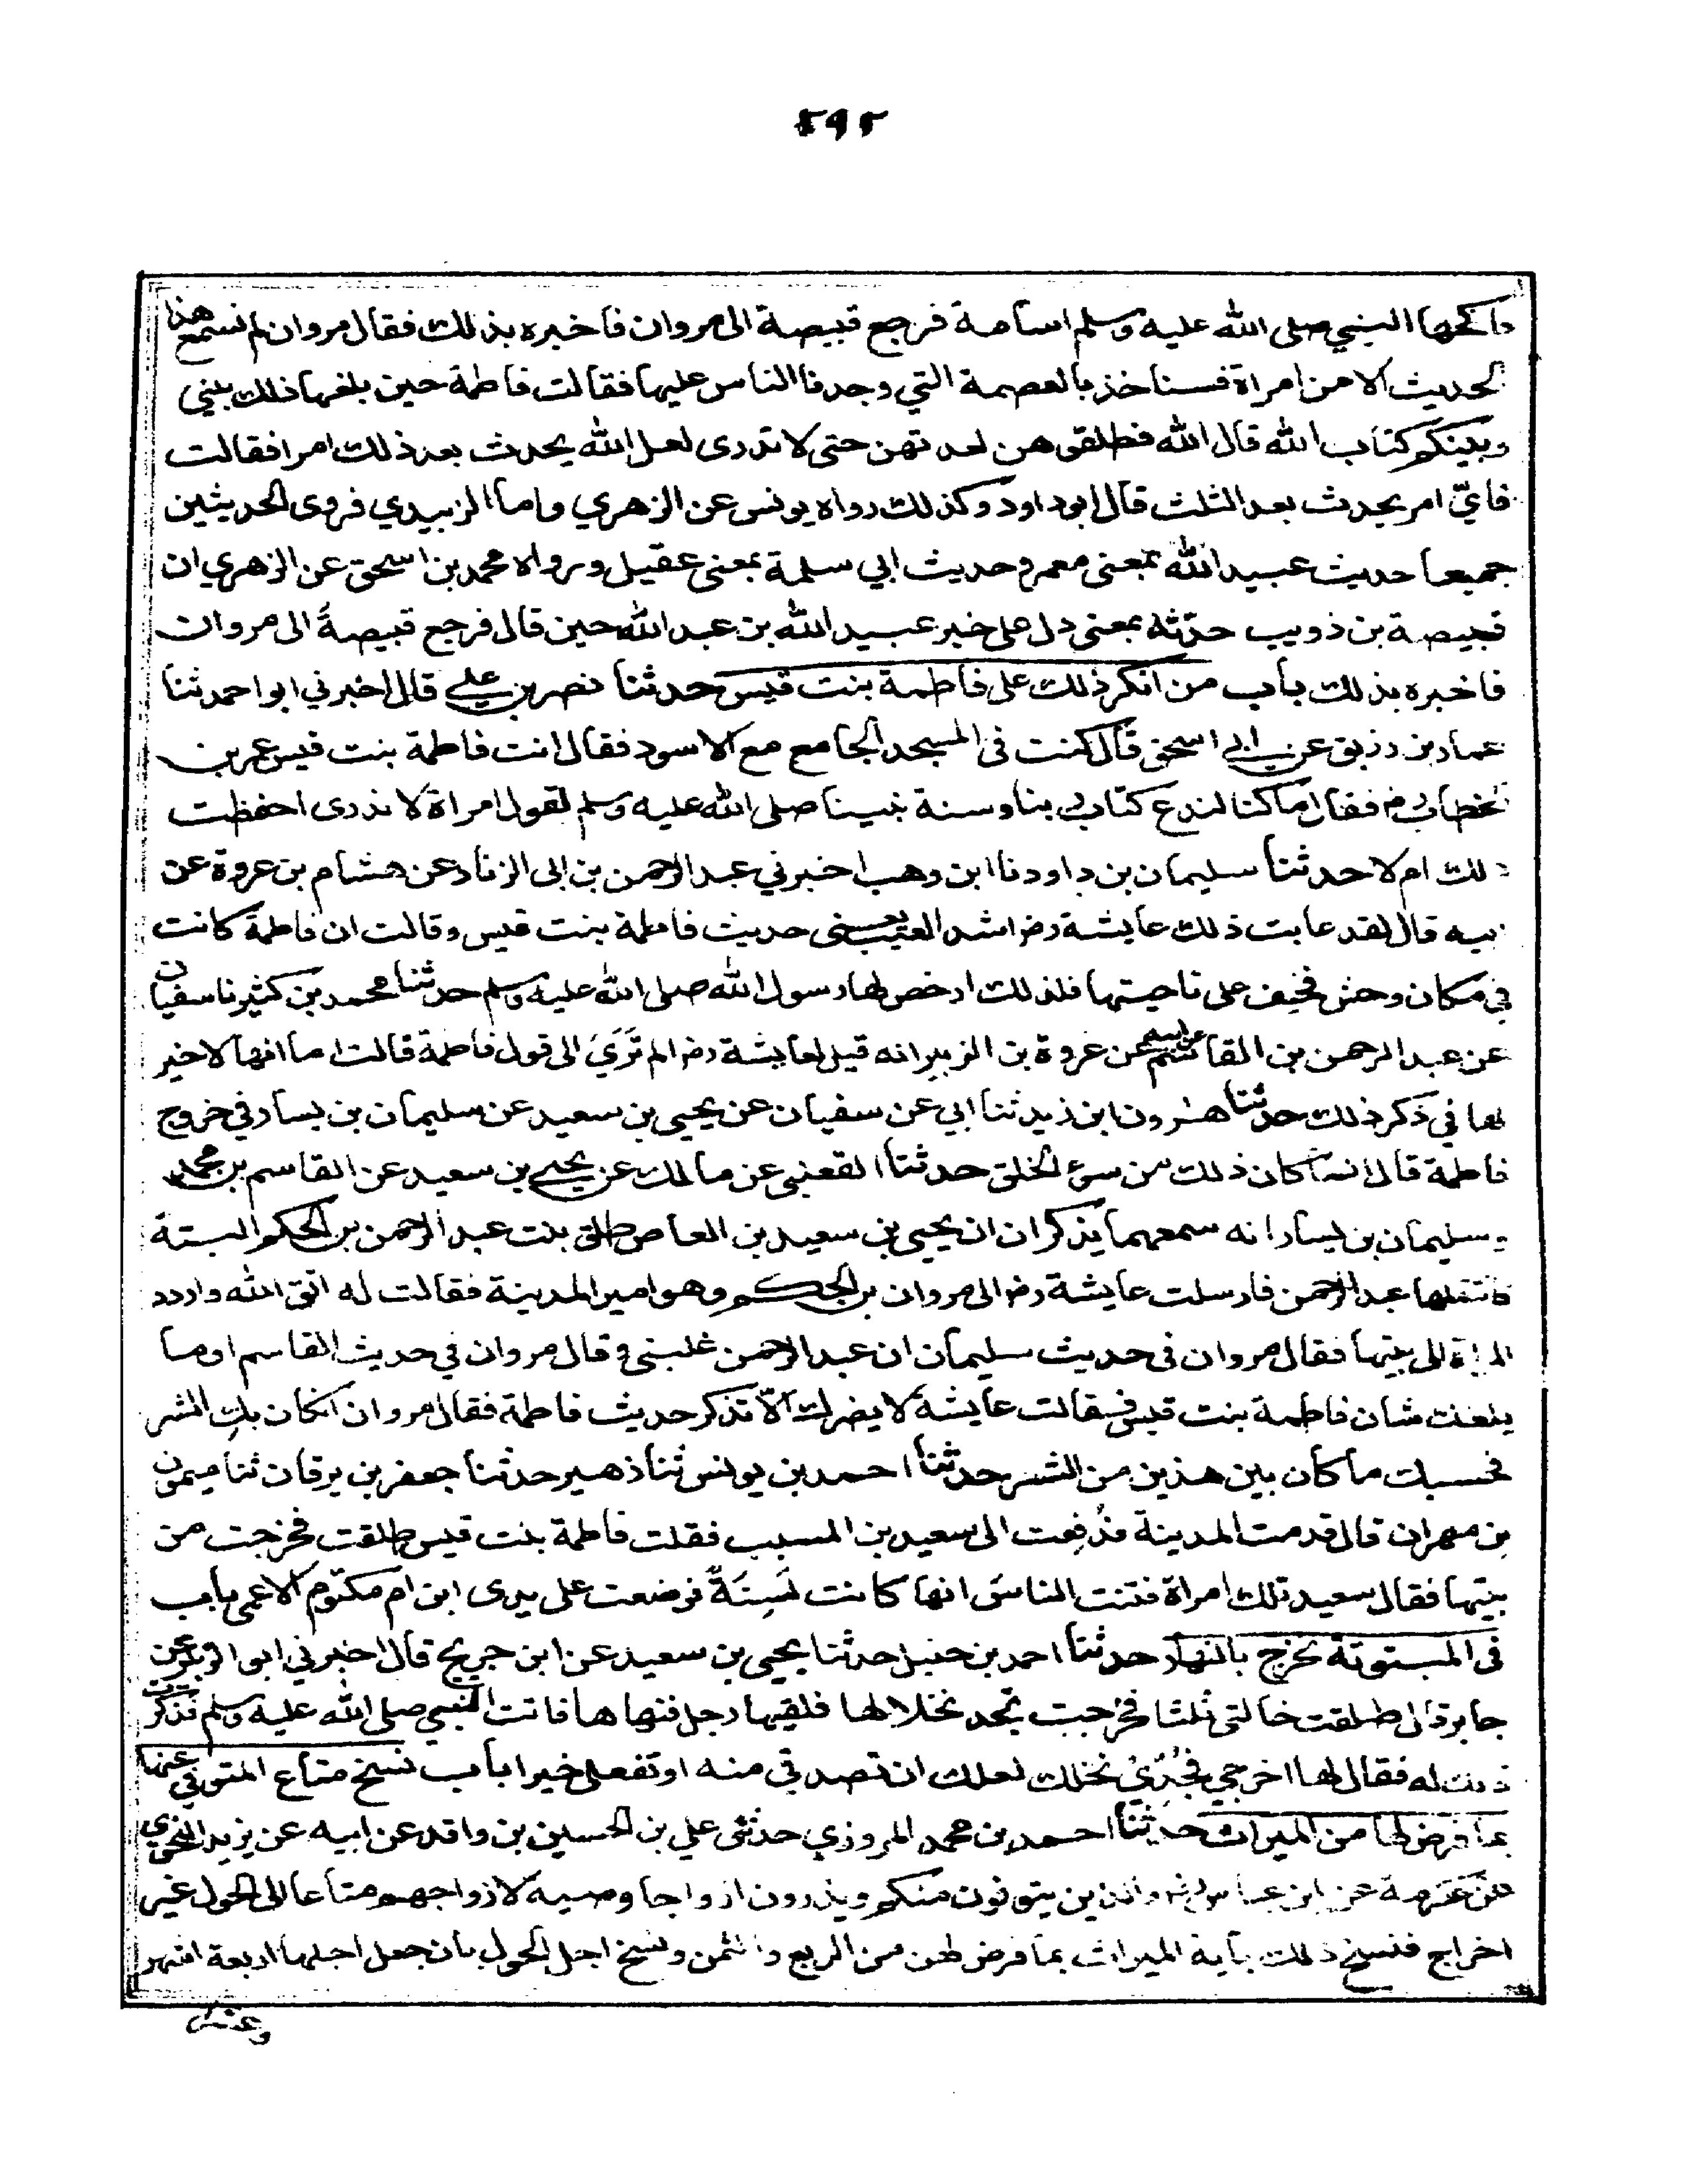 ٤٩٢
فانكحها النبي صلى الله عليه وسلم اسامة فرجع قبيصة الى مروان فاخبره بذلك فقال مروان لم نسمع هذا
الحديث الا من امراة فسناخذ بالعصمة التي وجدنا الناس عليها فقالت فاطمة حين بلغها ذلك بيني
وبينكم كتاب الله قال الله فطلقوهن لعدتهن حتى لا تدرى لعل الله يحدث بعد ذلك امرا فقالت
فايّ امر يحدث بعد الثلث قال ابو داود وكذلك رواه يونس عن الزهري واما الزبيدي فروى الحديثين
جميعا حديث عبيد الله بمعنى معمر وحديث ابي سلمة بمعنى عقيل ورواه محمد بن اسحق عن الزهري ان
قبيصة بن ذويب حدّثه بمعنى دل على خبر عبيد الله بن عبد الله حين قال فرجع قبيصةُ الى مروان
فاخبره بذلك باب من انكر ذلك على فاطمة بنت قيس حدثنا نصر بن علي قال اخبرني ابو احمد ثنا
عمار بن رزيق عن ابي اسحق قال كنت فى المسجد الجامع مع الاسود فقال اتت فاطمة بنت قيس عمر بن
الخطاب رض فقال ما كنا لندع كتاب ربنا وسنة نبينا صلى الله عليه وسلم لقول امراة لا ندرى احفظت
ذلك ام لا حدثنا سليمان بن داود نا ابن وهب اخبرني عبد الرحمن بن ابى الزناد عن هشام بن عروة عن
ابيه قال لقد عابت ذلك عايشة رض اشد العيب يعنى حديث فاطمة بنت قيس وقالت ان فاطمة كانت
في مكان وحش فخيف على ناحيتها فلذلك ارخص لها رسول الله صلى الله عليه وسلم حدثنا محمد بن كثير نا سفيان
عن عبد الرحمن بن القاسم عن ابيه عن عروة بن الزبير انه قيل لعايشة رض الم تَرَيْ الى قول فاطمة قالت اما انها لا خير
لها في ذكر ذلك حدثنا هرون ابن زيد ثنا ابي عن سفيان عن يحيى بن سعيد عن سليمان بن يسار في خروج
فاطمة قال انما كان ذلك من سوء الخلق حدثنا القعنبى عن مالك عن يحيى بن سعيد عن القاسم بن محمد
وسليمان بن يسار انه سمعهما يذكران ان يحيى بن سعيد بن العاص طلق بنت عبد الرحمن بن الحكم البتة
فانتقلها عبد الرحمن فارسلت عايشة رض الى مروان بن الحكم وهو امير المدينة فقالت له اتق الله واردد
المراة الى بيتها فقال مروان فى حديث سليمان ان عبد الرحمن غلبنى وقال مروان في حديث القاسم او ما
بلغك شان فاطمة بنت قيس فقالت عايشة لا يضرك الّا تذكر حديث فاطمة فقال مروان ان كان بكِ الشر
فحسبك ما كان بين هذين من الشر حدثنا احمد بن يونس ثنا زهير حدثنا جعفر بن برقان ثنا ميمون
بن مهران قال قدمت المدينة فدُفِعت الى سعيد بن المسيب فقلت فاطمة بنت قيس طلقت فخرجت من
بيتها فقال سعيد تلك امراة فتنت الناسَ انها كانت لَسِنَةً فوضعت على يدى ابن ام مكتوم الاعمى باب
فى المبتوتة تخرج بالنهار حدثنا احمد بن حنبل حدثنا يحيى بن سعيد عن ابن جريج قال اخبرني ابو الزبير عن
جابر قال طلقت خالتى ثلثا فخرجت تجد نخلا لها فلقيها رجل فنهاها فاتت النبي صلى الله عليه وسلم فذكرت
ذلك له فقال لها اخرجي فجُدِّيْ نخلك لعلك ان تصدقي منه او تفعلى خيرا باب نسخ متاع المتوفى عنها
بما فرض لها من الميراث حدثنا احمد بن محمد المروزي حدثنى علي بن الحسين بن واقد عن ابيه عن يزيد النحوي
عن عكرمة عن ابن عباس والذين يتوفون منكم ويذرون ازواجا وصية لازواجهم متاعا الى الحول غير
اخراج فنسخ ذلك باية الميراث بما فرض لهن من الربع والثمن ونسخ اجل الحول بان جعل اجلها اربعة اشهر
وعشرا